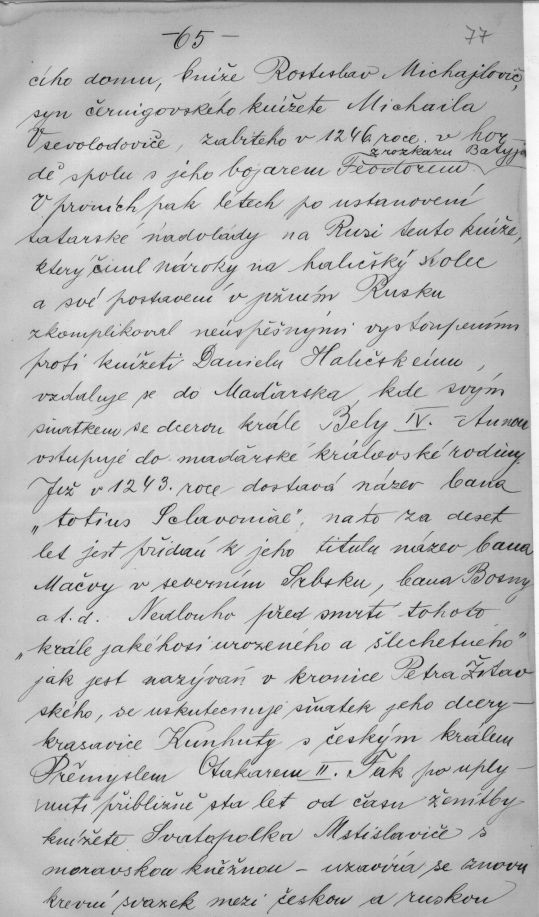 -65-
77
cího domu, kníže Rostislav Michajlovič,
syn černigovského knížete Michaila
Vsevolodoviče, zabitého v 1246. roce v hor-
z rozkazu Batyja
dě spolu s jeho bojarem Feodorem.
V prvních pak létech po ustanovení
tatarské nadvlády na Rusi tento kníže,
který činil nároky na haličský stolec
a své postavení v jižním Rusku
zkomplikoval neúspěšnými vystoupeními
proti knížeti Danielu Haličskému,
vzdaluje se do Maďarska, kde svým
sňatkem se dcerou krále Bely IV. Annou
vstupuje do maďarské královské rodiny.
Již v 1243. roce dostává název bana
„totius Sclavoniae", nato za deset
let jest přidán k jeho titulu název bana
Mačvy v severním Srbsku, bana Bosny
a t. d. Nedlouho před smrtí tohoto
„krále jakéhosi urozeného a šlechetného"
jak jest nazýván v kronice Petra Žitav-
ského, se uskutečňuje sňatek jeho dcery-
krasavice Kunhuty s českým králem
Přemyslem Otakarem II. Tak po uply-
nutí přibližně sta let od času ženitby
knížete Svatopolka Mstislaviče s
moravskou kněžnou - uzavírá se znovu
krevní svazek mezi českou a ruskou